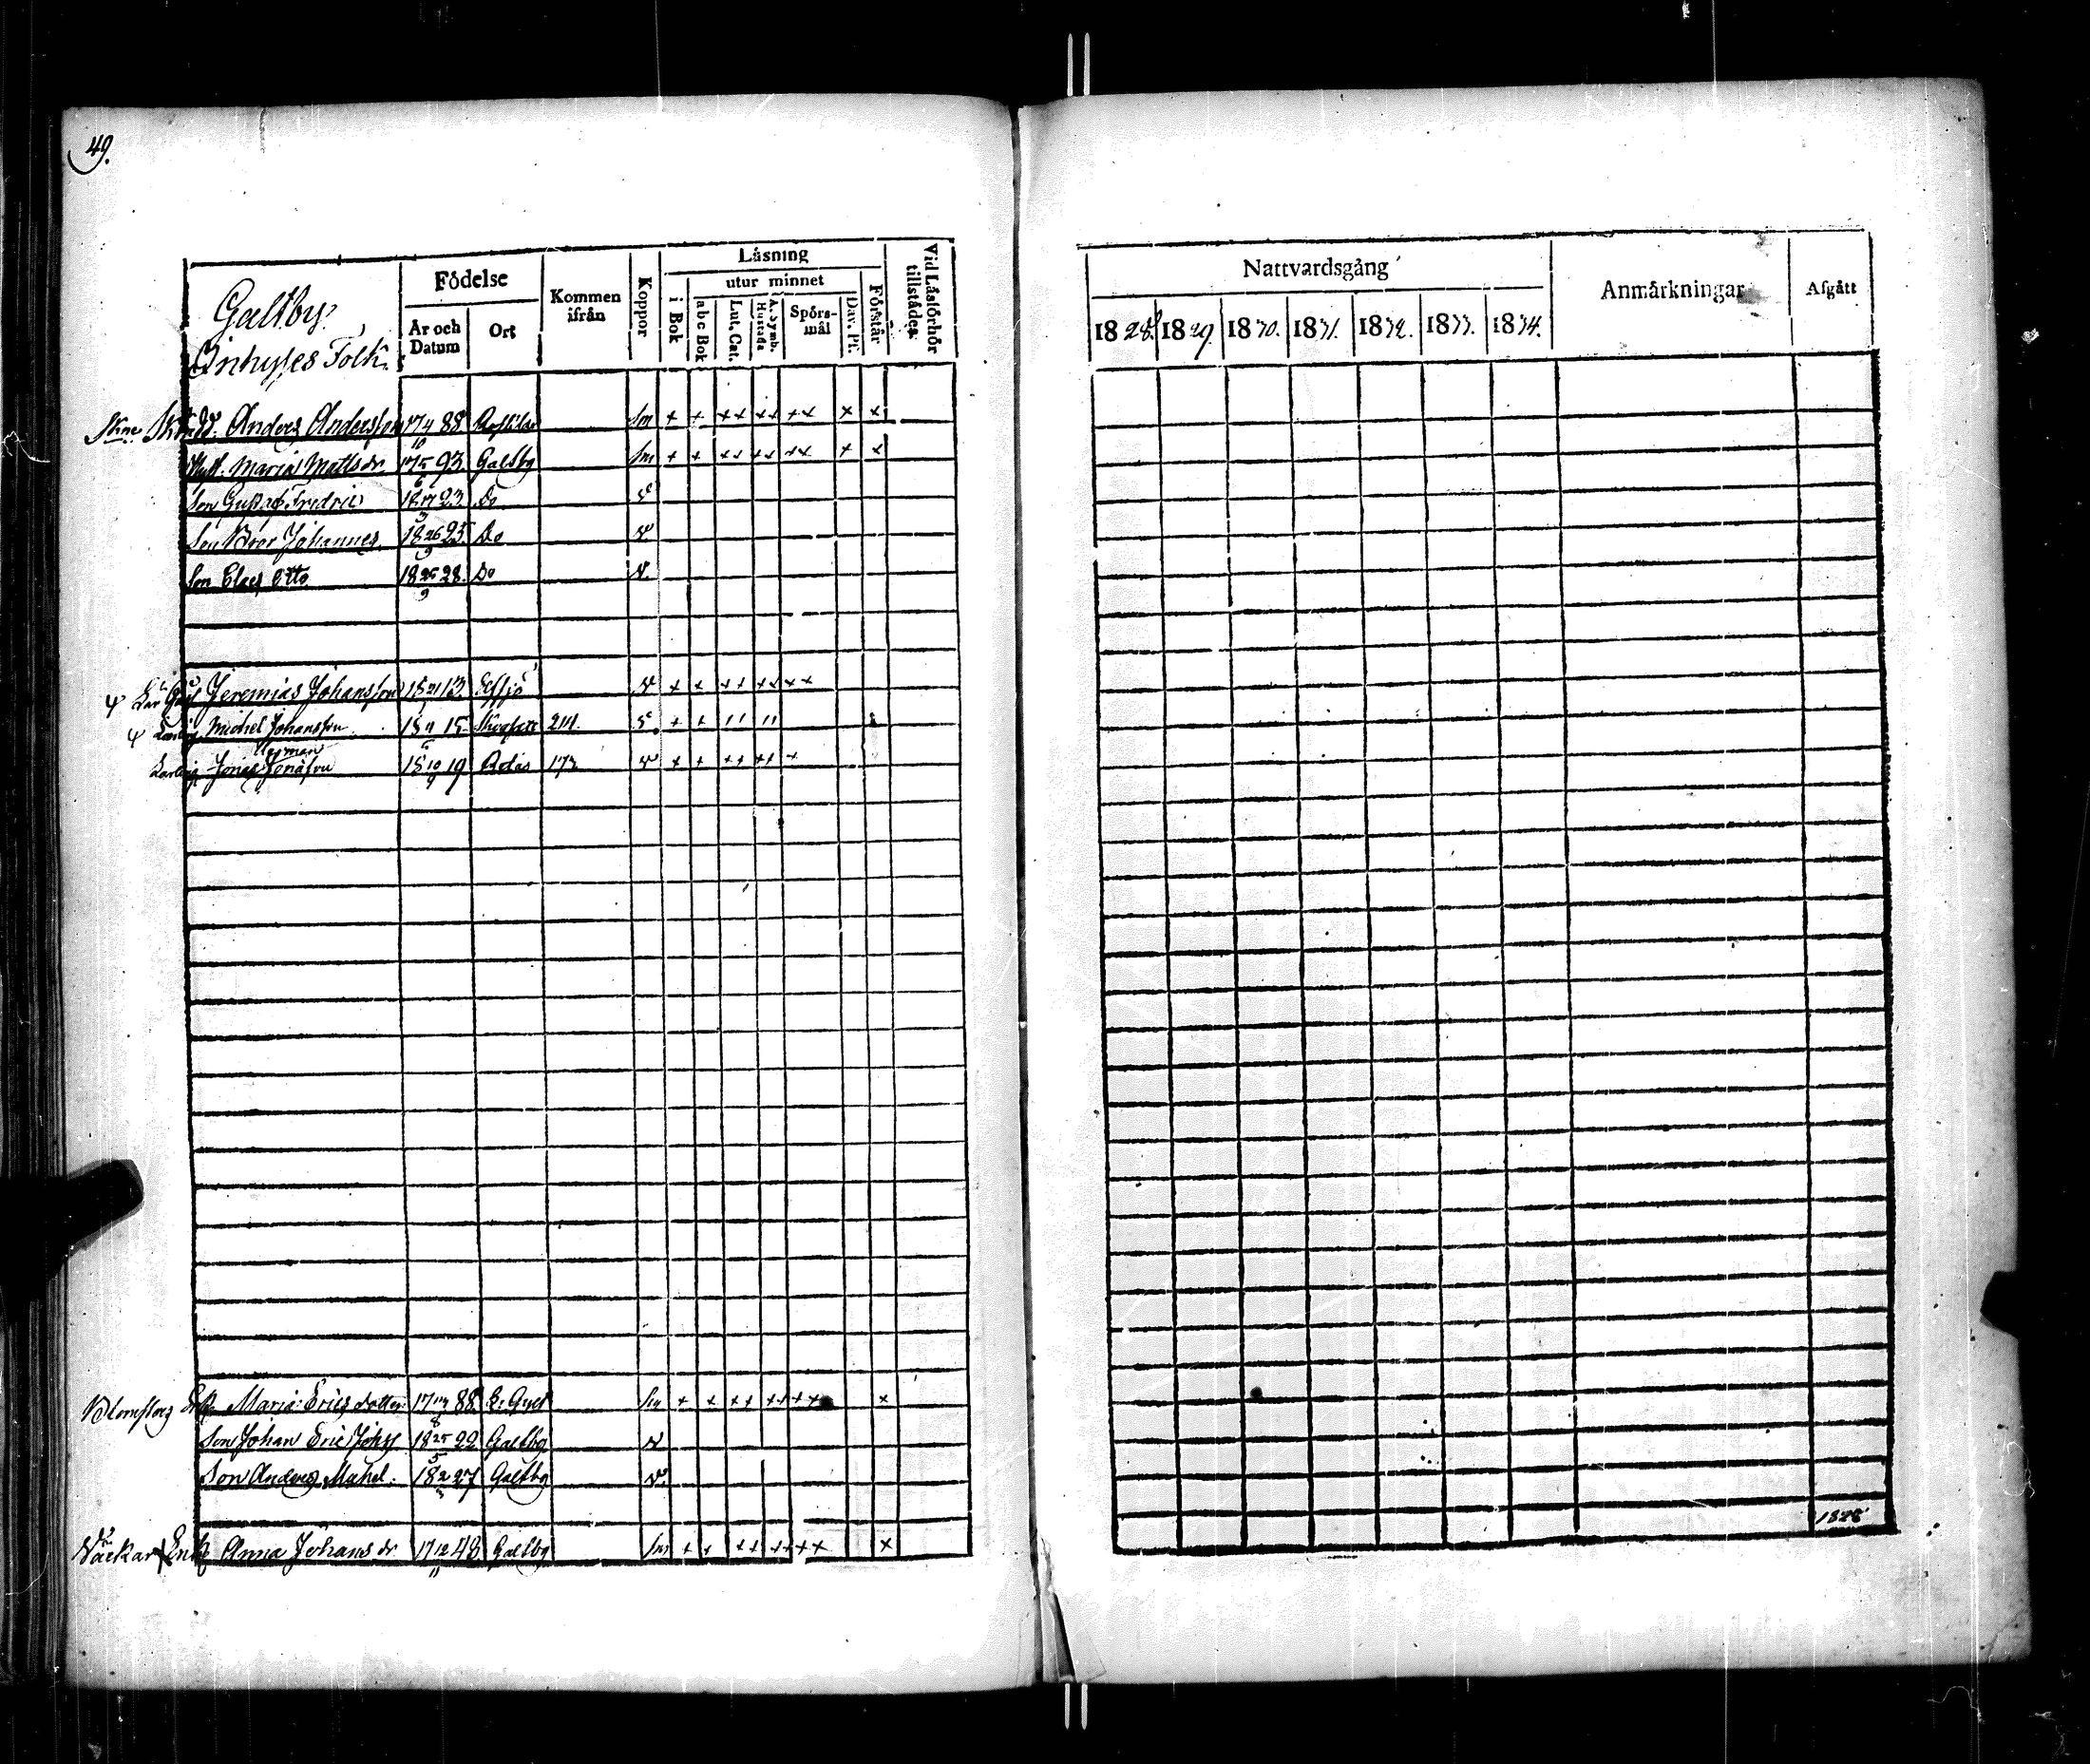 49.
Galtby.
Inhyses Folk.
Födelse
År och Datum
Ort
Kommen ifrån
Koppor
Läsning
i Bok
utur minnet
abc Bok
Lut. Cat.
A. Symb. Hustafla
Spörs-mål
Dav. Ps.
Förstår
Vid Läsförhör tillstädes
Nattvardsgång
1828. 1829. 1830. 1831. 1832. 1833. 1834.
Anmärkningar
Afgått
Anders Andersson 17 4/10 88 Sm + + ++ ++ ++ + +
Hust. Maria Matts dr 17 5/6 93 Galtby Sm + + ++ ++ ++ + +
Son Gustaf Fredric 18 17/3 23 Do
Son Bror Johannes 18 26/9 25 Do v
Son Claes Otto 18 25/9 28. Do v.
Jeremias Johansson 18 21 13 v + + ++ ++ ++
Michel Johansson 18 15. 211. + + " "
Herman
Jonas Jonasson 18 10/4 19 173 v + + ++ ++ +
Enk. Maria Erics dotter 17 88 Sm + + ++ ++ ++ +
Son Johan Eric 18 25/5 22 Galtby v
Son Anders Michel. 18 2 27 Galtby v.
Enk. Anna Johans dr 17 12/11 48 Galtby Sm + + ++ ++ ++ +
1828